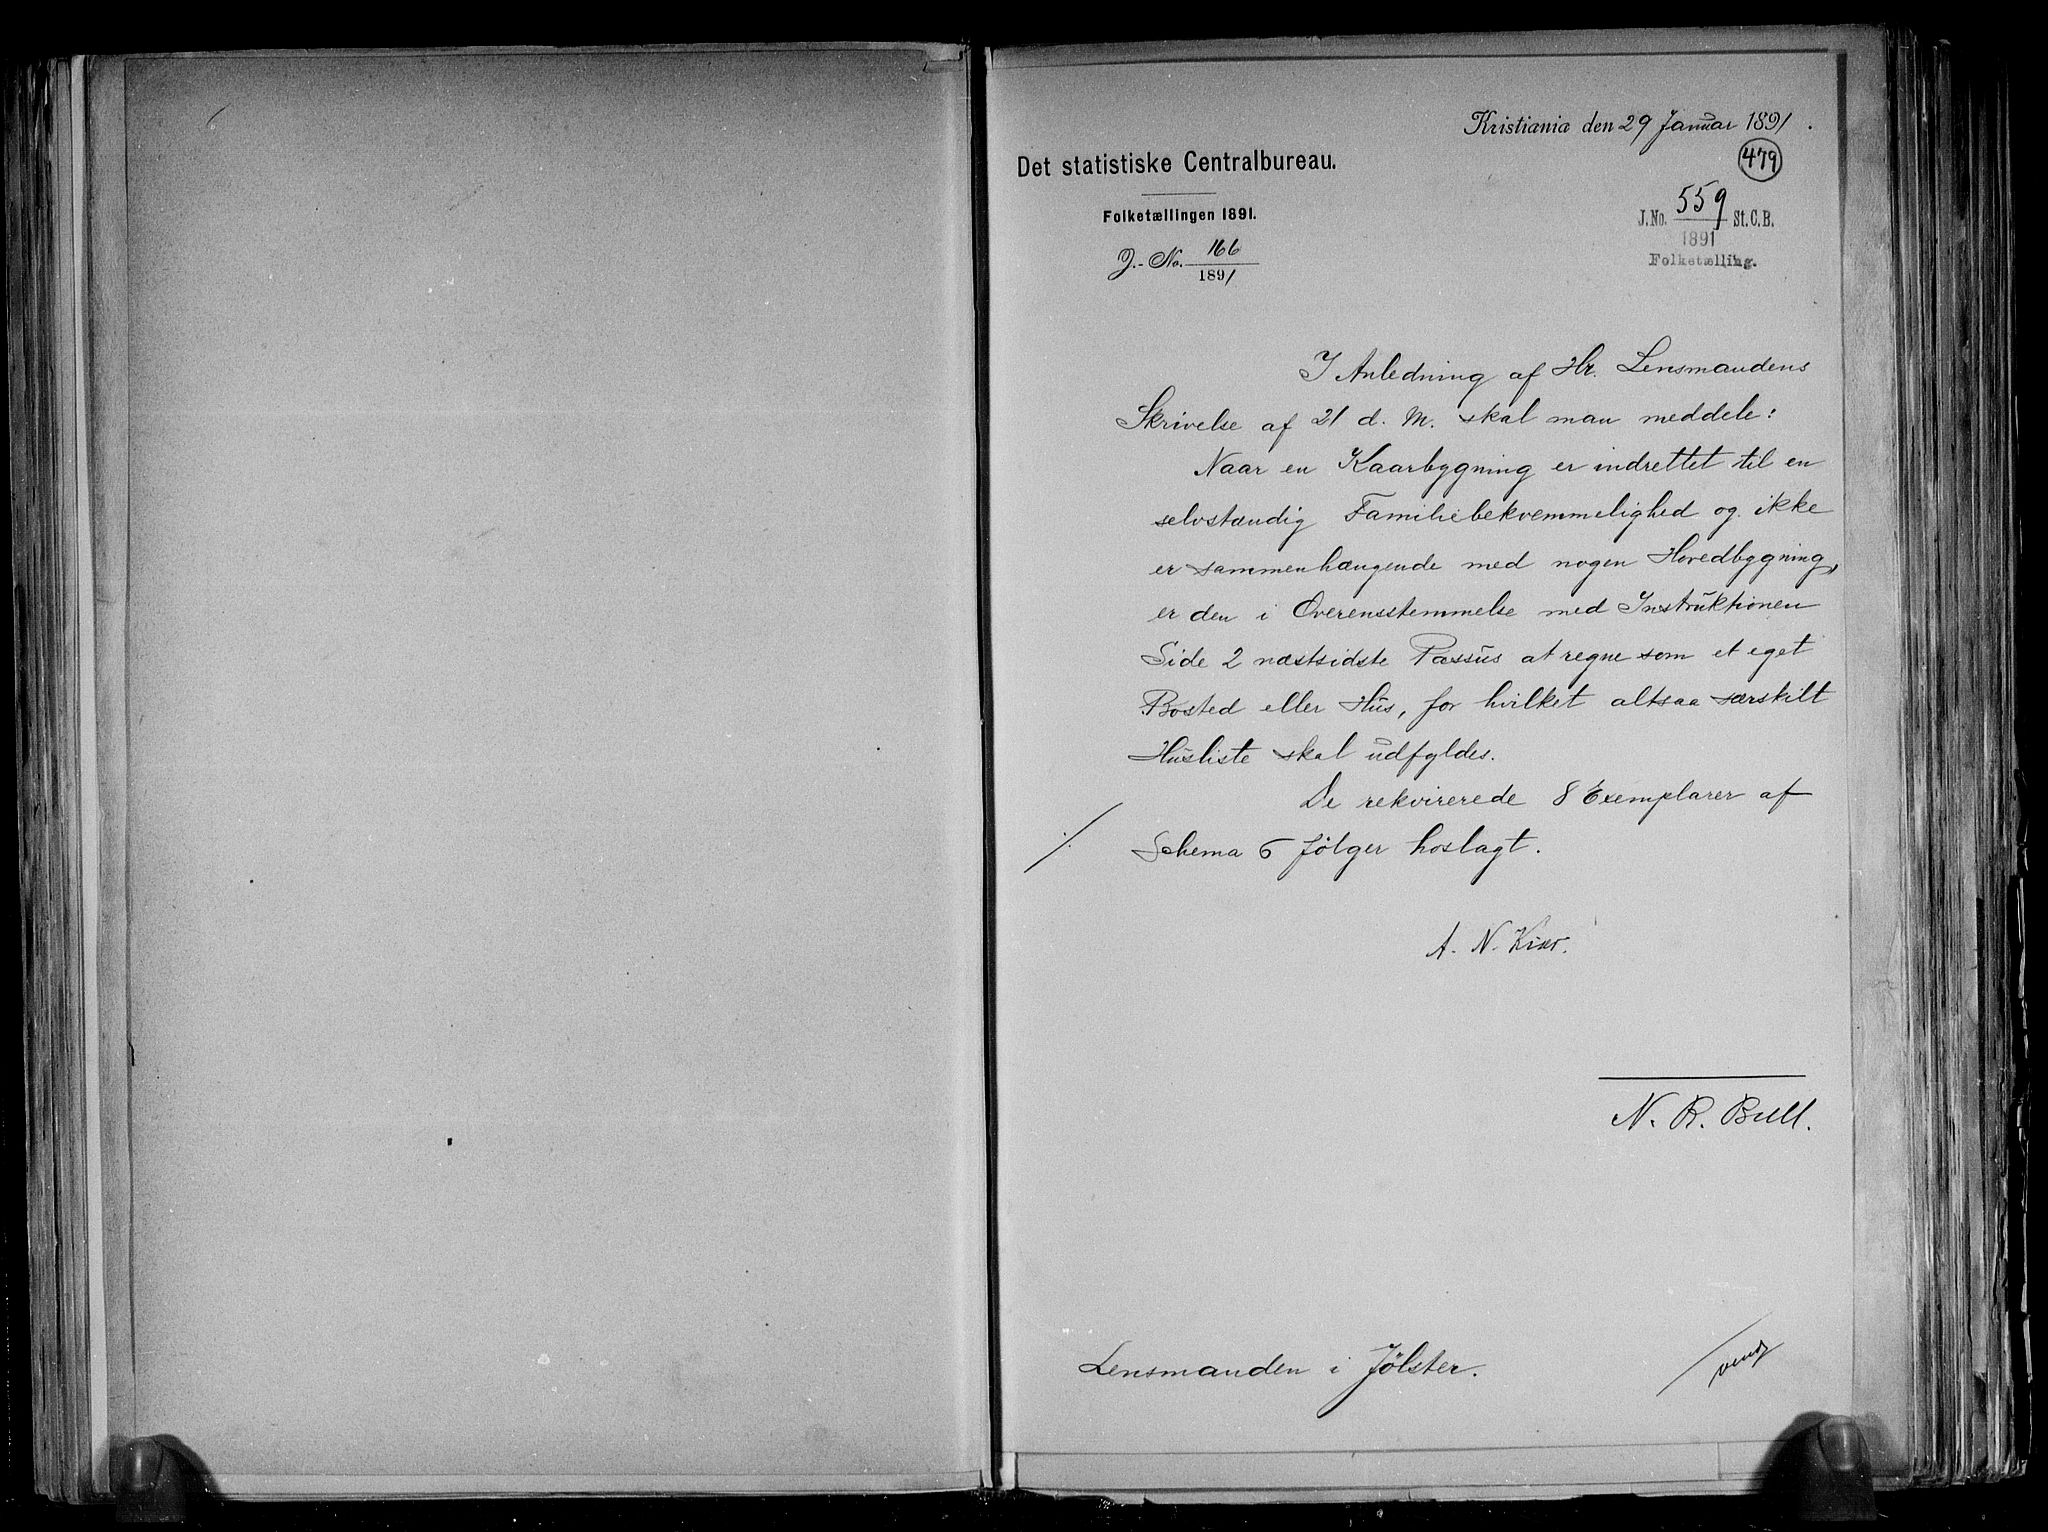 Kristiania den 29 Januar 1891.
479
Det statistiske Centralbureau.
Folketællingen 1891.
J.-No. 166
1891
J.No. 559 St.C.B.
1891
Folketælling.
I Anledning af Hr. Lensmandens
Skrivelse af 21 d. M. skal man meddele:
Naar en Kaarbygning er indrettet til en
selvstændig Familiebekvemmelighed og ikke
er sammenhængende med nogen Hovedbygning,
er den i Overensstemmelse med Instruktionen
Side 2 næstsidste Passus at regne som et eget
Bosted eller Hus, for hvilket altsaa særskilt
Husliste skal udfyldes.
De rekvirerede 8 Exemplarer af
Schema 6 følger hoslagt.
A. N. Kiær.
N. R. Bull.
Lensmanden i Jølster.
vend